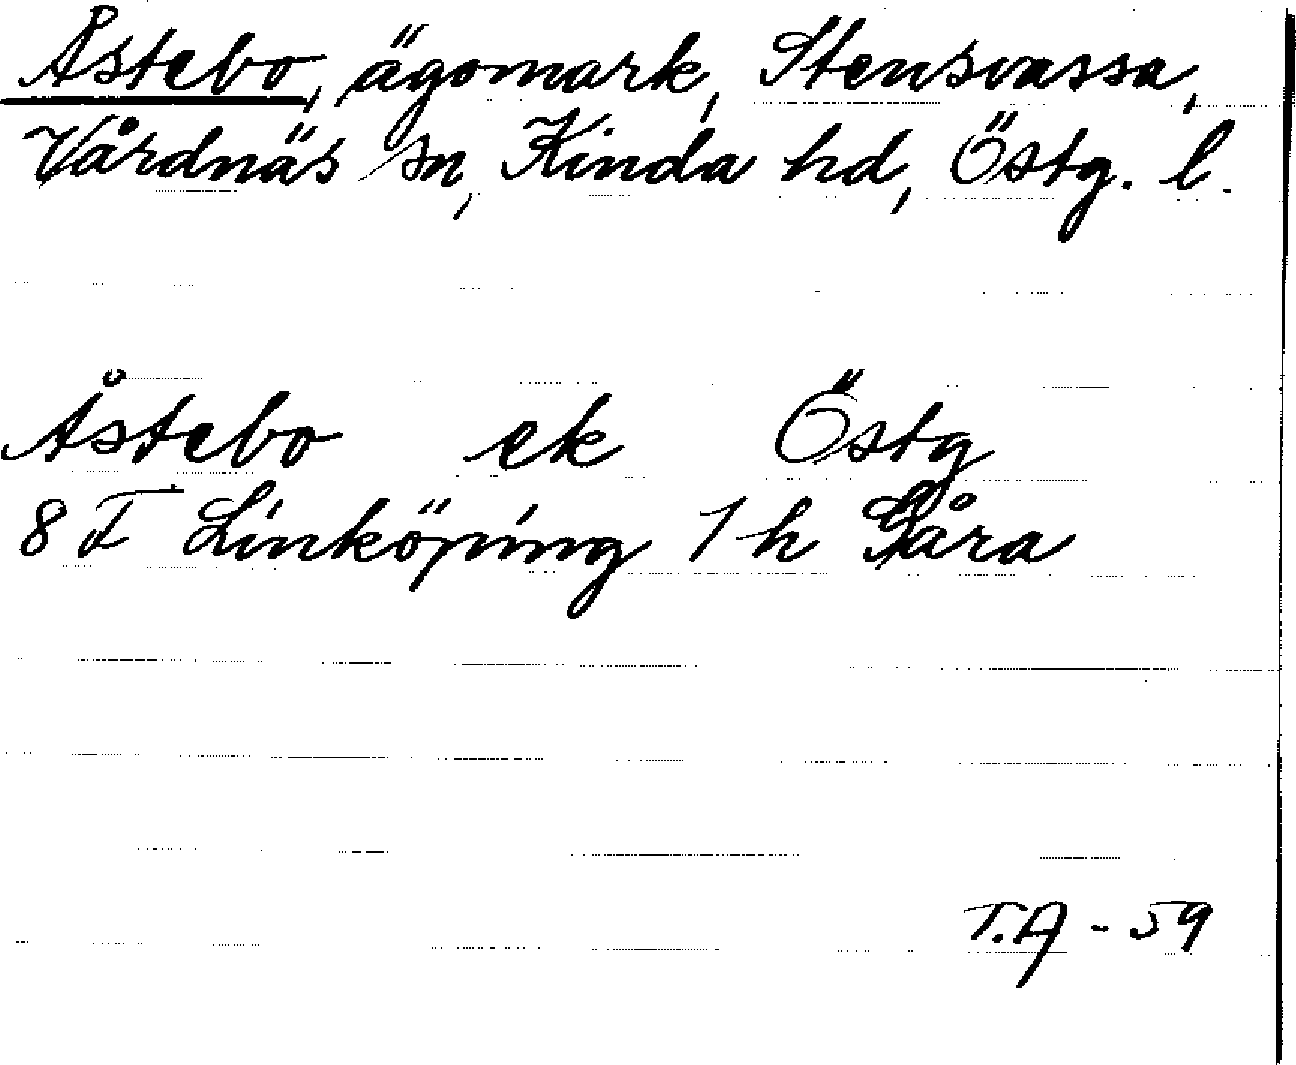 Åstebo, ägomark, Stensvassa,
Vårdnäs sn, Kinda hd, Östg. l.
Åstebo ek Östg
8 F Linköping 1 h Gåra
T.A - 59